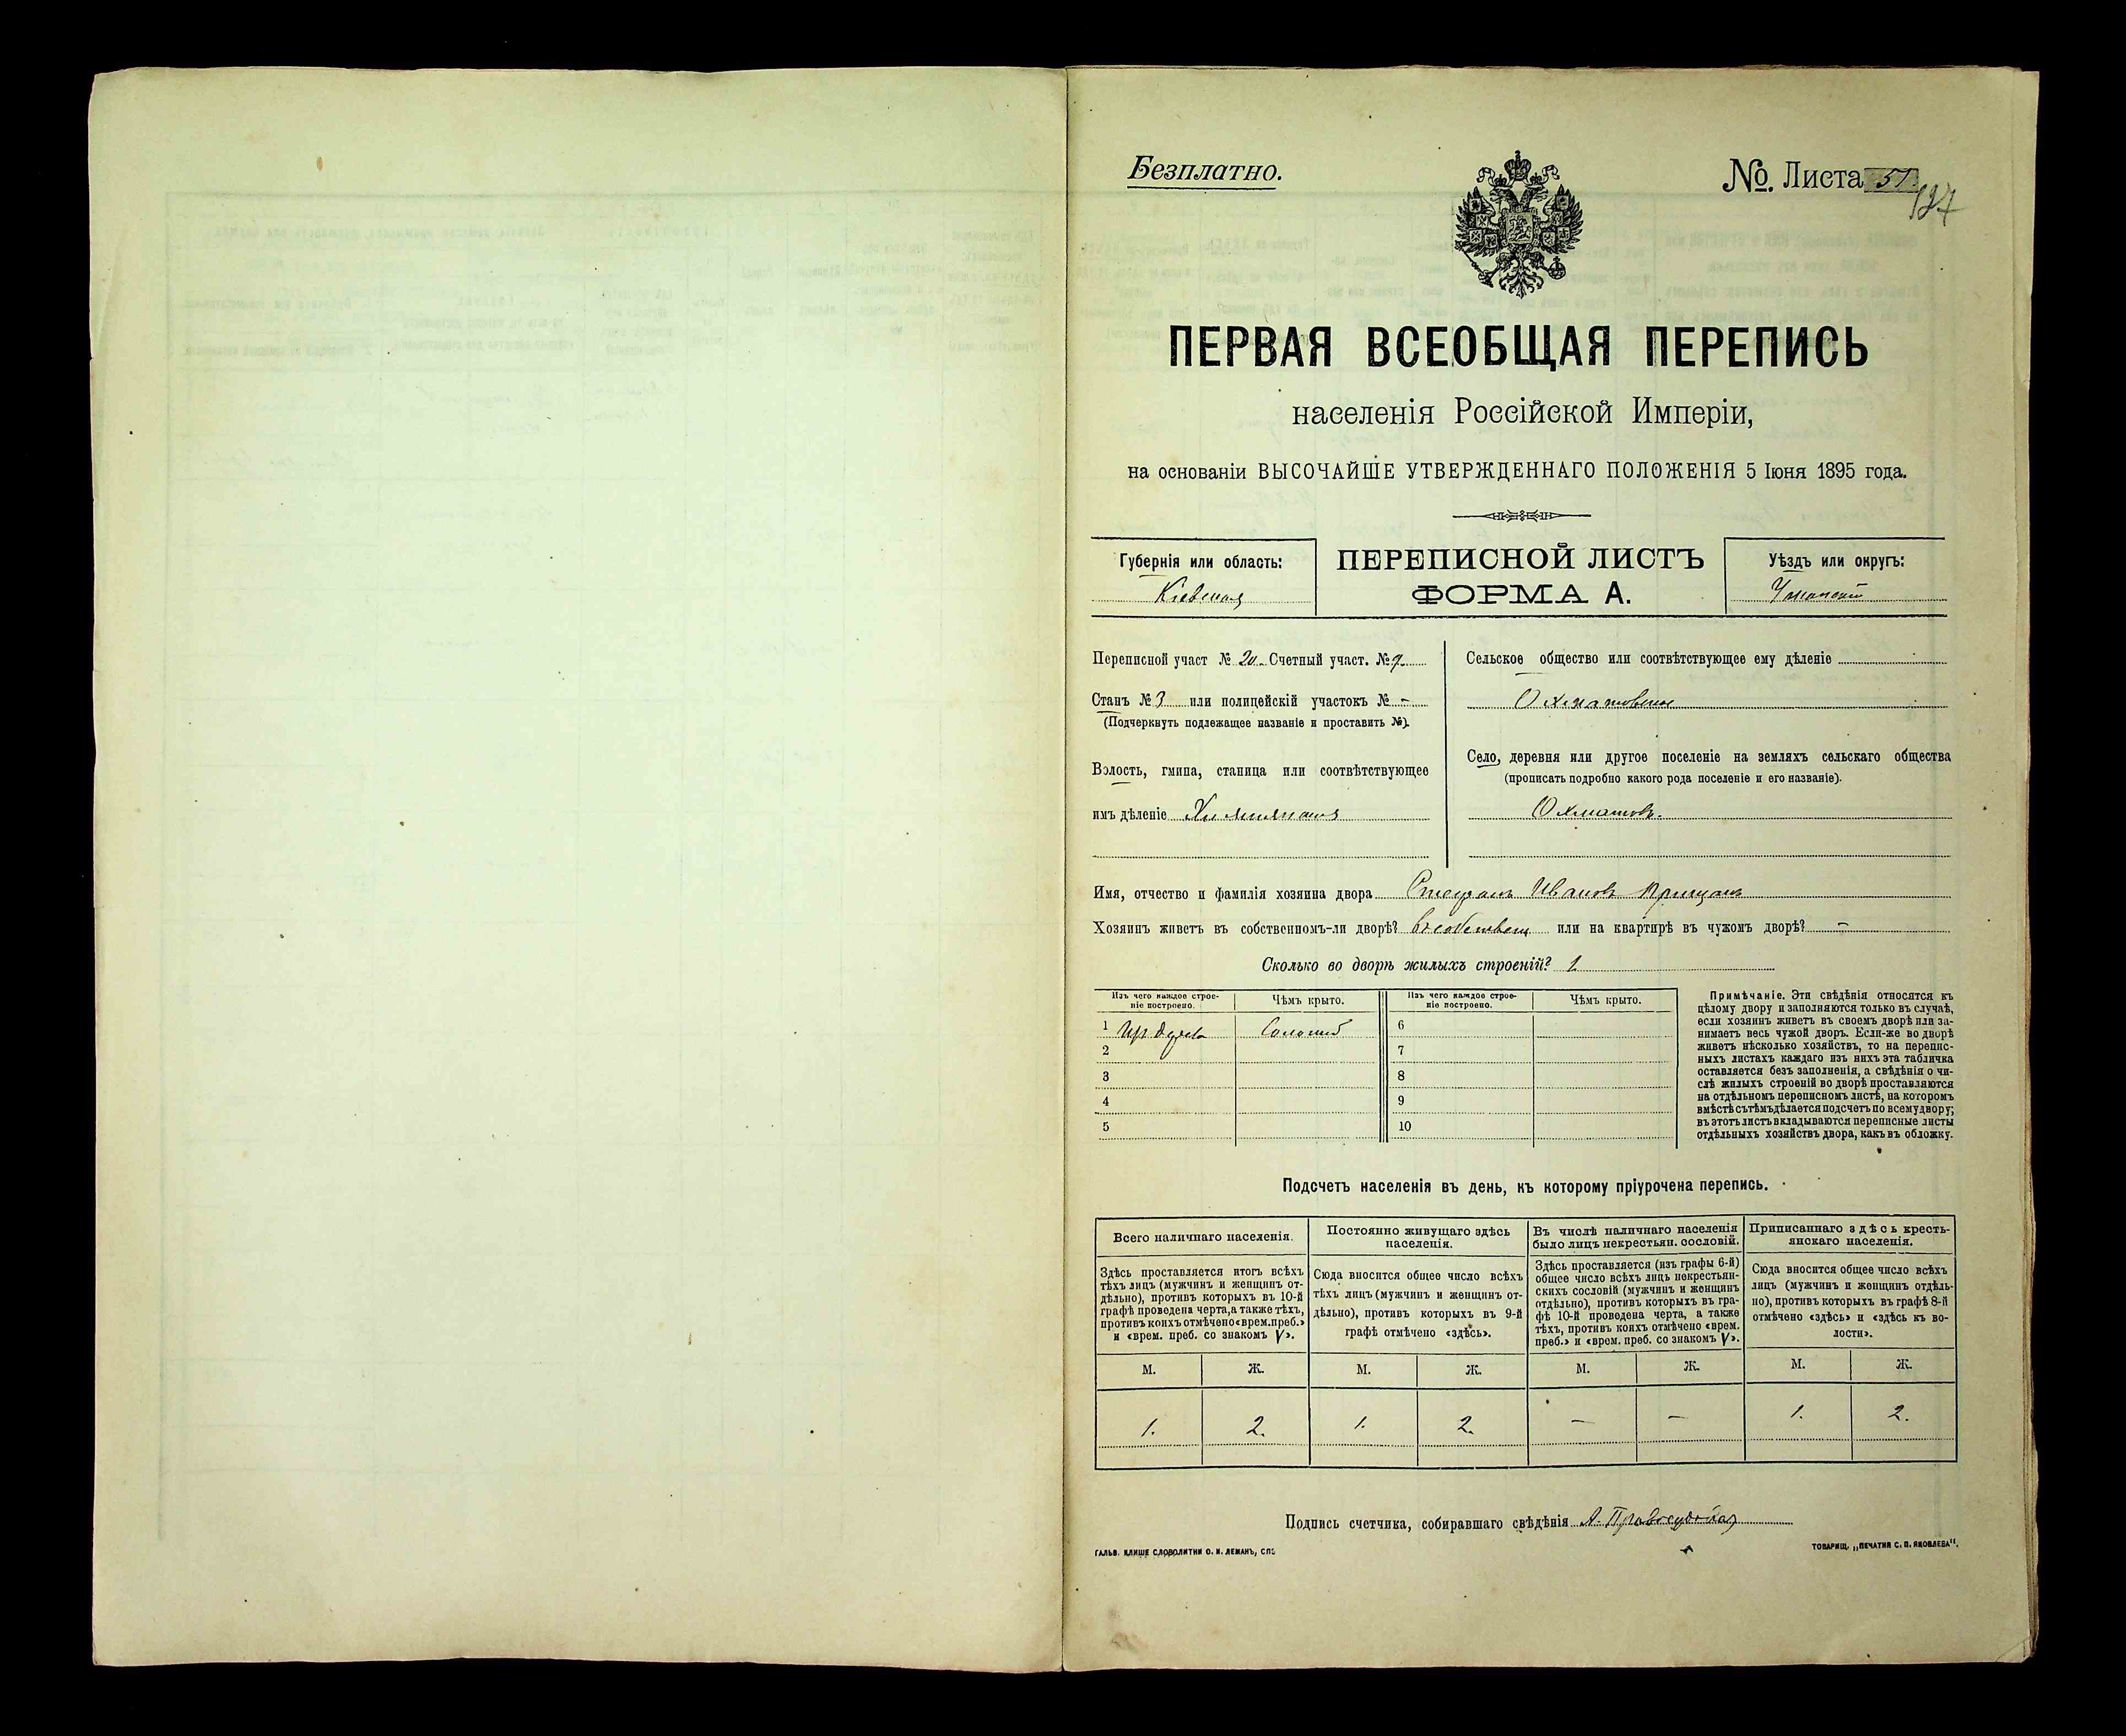 Безплатно.
№. Листа 51.
127
ПЕРВАЯ ВСЕОБЩАЯ ПЕРЕПИСЬ
населенія Россійской Имперіи,
на основаніи ВЫСОЧАЙШЕ УТВЕРЖДЕННАГО ПОЛОЖЕНІЯ 5 Іюня 1895 года.
Губернія или область:
Кіевская
ПЕРЕПИСНОЙ ЛИСТЪ
ФОРМА А.
Уѣздъ или округъ:
Уманскій
Переписной участ № 20 Счетный участ. №
Станъ № 3 или полицейскій участокъ № -
(Подчеркнуть подлежащее названіе и проставить №).
Волость, гмина, станица или соотвѣтствующее
имъ дѣленіе
Сельское общество или соотвѣтствующее ему дѣленіе
Охматовское
Село, деревня или другое поселеніе на земляхъ сельскаго общества
(прописать подробно какого рода поселеніе и его названіе).
Охматовъ.
Имя, отчество и фамилія хозяина двора Стефанъ Ивановъ
Хозяинъ живетъ въ собственномъ-ли дворѣ? въ собствен или на квартирѣ въ чужомъ дворѣ? -
Сколько во дворѣ жилыхъ строеній? 1
Изъ чего каждое строе-
ніе построено.
Чѣмъ крыто.
Изъ чего каждое строе-
ніе построено.
Чѣмъ крыто.
1 Изъ дерева Соломой 6
2 7
3 8
4 9
5 10
Примѣчаніе. Эти свѣдѣнія относятся къ
цѣлому двору и заполняются только въ случаѣ,
если хозяинъ живетъ въ своемъ дворѣ или за-
нимаетъ весь чужой дворъ. Если-же во дворѣ
живетъ нѣсколько хозяйствъ, то на перепис-
ныхъ листахъ каждаго изъ нихъ эта табличка
оставляется безъ заполненія, а свѣдѣнія о чи-
слѣ жилыхъ строеній во дворѣ проставляются
на отдѣльномъ переписномъ листѣ, на которомъ
вмѣстѣ съ тѣмъ дѣлается подсчетъ по всему двору;
въ этотъ листъ вкладываются переписные листы
отдѣльныхъ хозяйствъ двора, какъ въ обложку.
Подсчетъ населенія въ день, къ которому пріурочена перепись.
Всего наличнаго населенія.
Здѣсь проставляется итогъ всѣхъ
тѣхъ лицъ (мужчинъ и женщинъ от-
дѣльно), противъ которыхъ въ 10-й
графѣ проведена черта, а также тѣхъ,
противъ коихъ отмѣчено «врем. преб.»
и «врем. преб. со знакомъ V».
Постоянно живущаго здѣсь
населенія.
Сюда вносится общее число всѣхъ
тѣхъ лицъ (мужчинъ и женщинъ от-
дѣльно), противъ которыхъ въ 9-й
графѣ отмѣчено «здѣсь».
Въ числѣ наличнаго населенія
было лицъ некрестьян. сословій.
Здѣсь проставляется (изъ графы 6-й)
общее число всѣхъ лицъ некрестьян-
скихъ сословій (мужчинъ и женщинъ
отдѣльно), противъ которыхъ въ гра-
фѣ 10-й проведена черта, а также
тѣхъ, противъ коихъ отмѣчено «врем.
преб.» и «врем. преб. со знакомъ V».
Приписаннаго здѣсь кресть-
янскаго населенія.
Сюда вносится общее число всѣхъ
лицъ (мужчинъ и женщинъ отдѣль-
но), противъ которыхъ въ графѣ 8-й
отмѣчено «здѣсь» и «здѣсь къ во-
лости».
М. Ж. М. Ж. М. Ж. М. Ж.
1. 2. 1. 2. - - 1. 2.
Подпись счетчика, собиравшаго свѣдѣнія
ГАЛЬВ. КЛИШЕ СЛОВОЛИТНИ О. И. ЛЕМАНЪ, СПБ
ТОВАРИЩ. „ПЕЧАТНЯ С. П. ЯКОВЛЕВА".